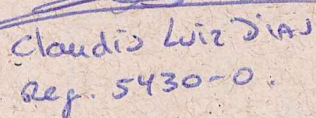 Claudio Luiz Dias
Reg. 5430-0.